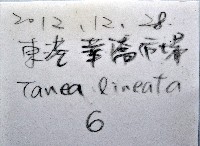 2012.12.28.
東港華僑市場
Tanea lineata
6